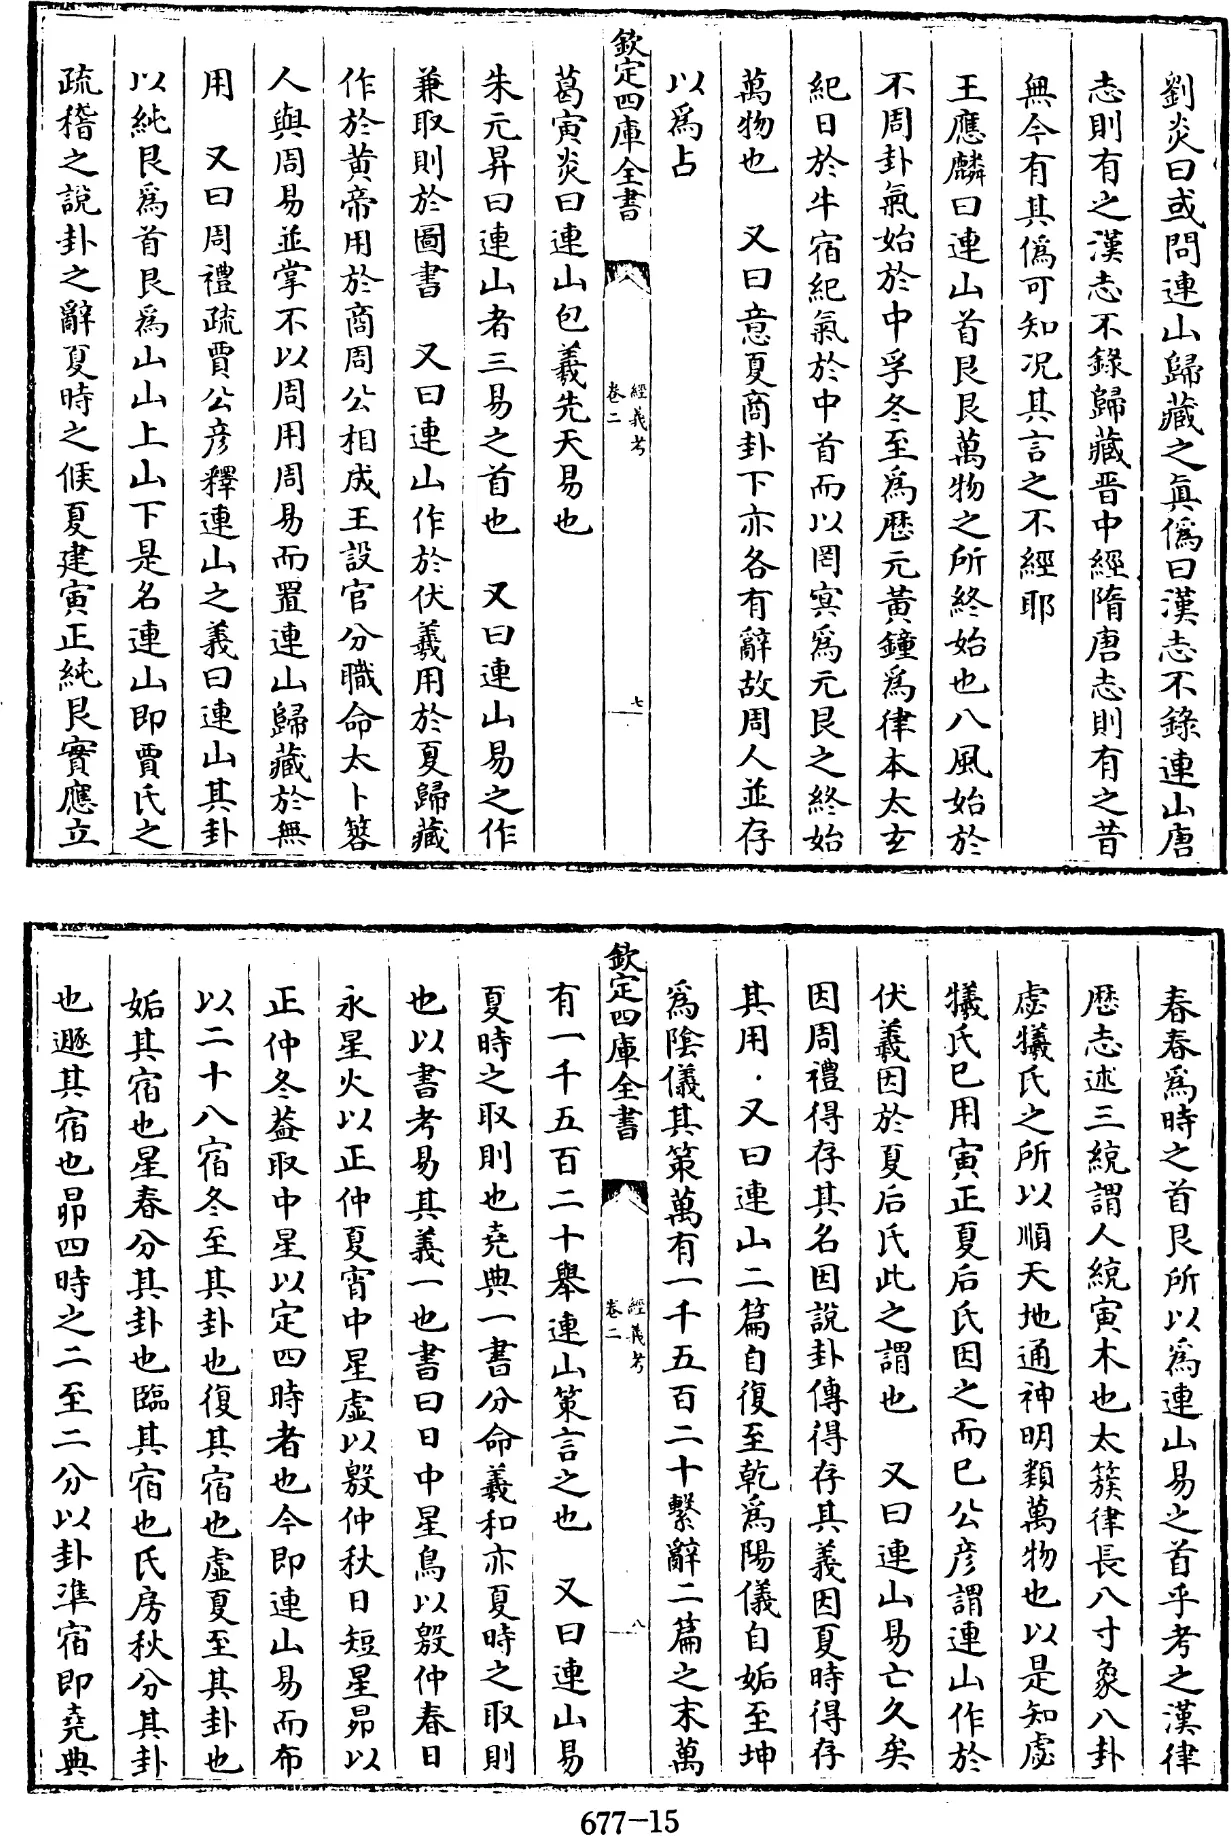 劉炎曰或問連山歸藏之眞僞曰漢志不錄連山唐
志則有之漢志不錄歸藏晋中經隋唐志則有之昔
無今有其僞可知况其言之不經耶
王應麟曰連山首艮艮萬物之所終始也八風始於
不周卦氣始於中孚冬至爲歴元黃鐘爲律本太玄
紀日於牛宿紀氣於中首而以罔冥爲元艮之終始
萬物也　又曰意夏商卦下亦各有辭故周人並存
以爲占
欽定四庫全書
經義考
卷二
七
葛寅炎曰連山包羲先天易也
朱元昇曰連山者三易之首也　又曰連山易之作
兼取則於圖書　又曰連山作於伏羲用於夏歸藏
作於黃帝用於商周公相成王設官分職命太卜簭
人與周易並掌不以周用周易而置連山歸藏於無
用　又曰周禮疏賈公彦釋連山之義曰連山其卦
以純艮爲首艮爲山山上山下是名連山即賈氏之
疏稽之說卦之辭夏時之候夏建寅正純艮實應立
春春爲時之首艮所以爲連山易之首乎考之漢律
歴志述三統謂人統寅木也太簇律長八寸象八卦
虙犧氏之所以順天地通神明類萬物也以是知虙
犧氏已用寅正夏后氏因之而已公彦謂連山作於
伏羲因於夏后氏此之謂也　又曰連山易亡久矣
因周禮得存其名因說卦傳得存其義因夏時得存
其用．又曰連山二篇自復至乾爲陽儀自姤至坤
爲陰儀其策萬有一千五百二十繫辭二篇之末萬
欽定四庫全書
經義考
卷二
八
有一千五百二十舉連山策言之也　又曰連山易
夏時之取則也堯典一書分命羲和亦夏時之取則
也以書考易其義一也書曰日中星鳥以殷仲春日
永星火以正仲夏宵中星虛以殷仲秋日短星昴以
正仲冬葢取中星以定四時者也今即連山易而布
以二十八宿冬至其卦也復其宿也虛夏至其卦也
姤其宿也星春分其卦也臨其宿也氐房秋分其卦
也遯其宿也昴四時之二至二分以卦凖宿即堯典
677-15